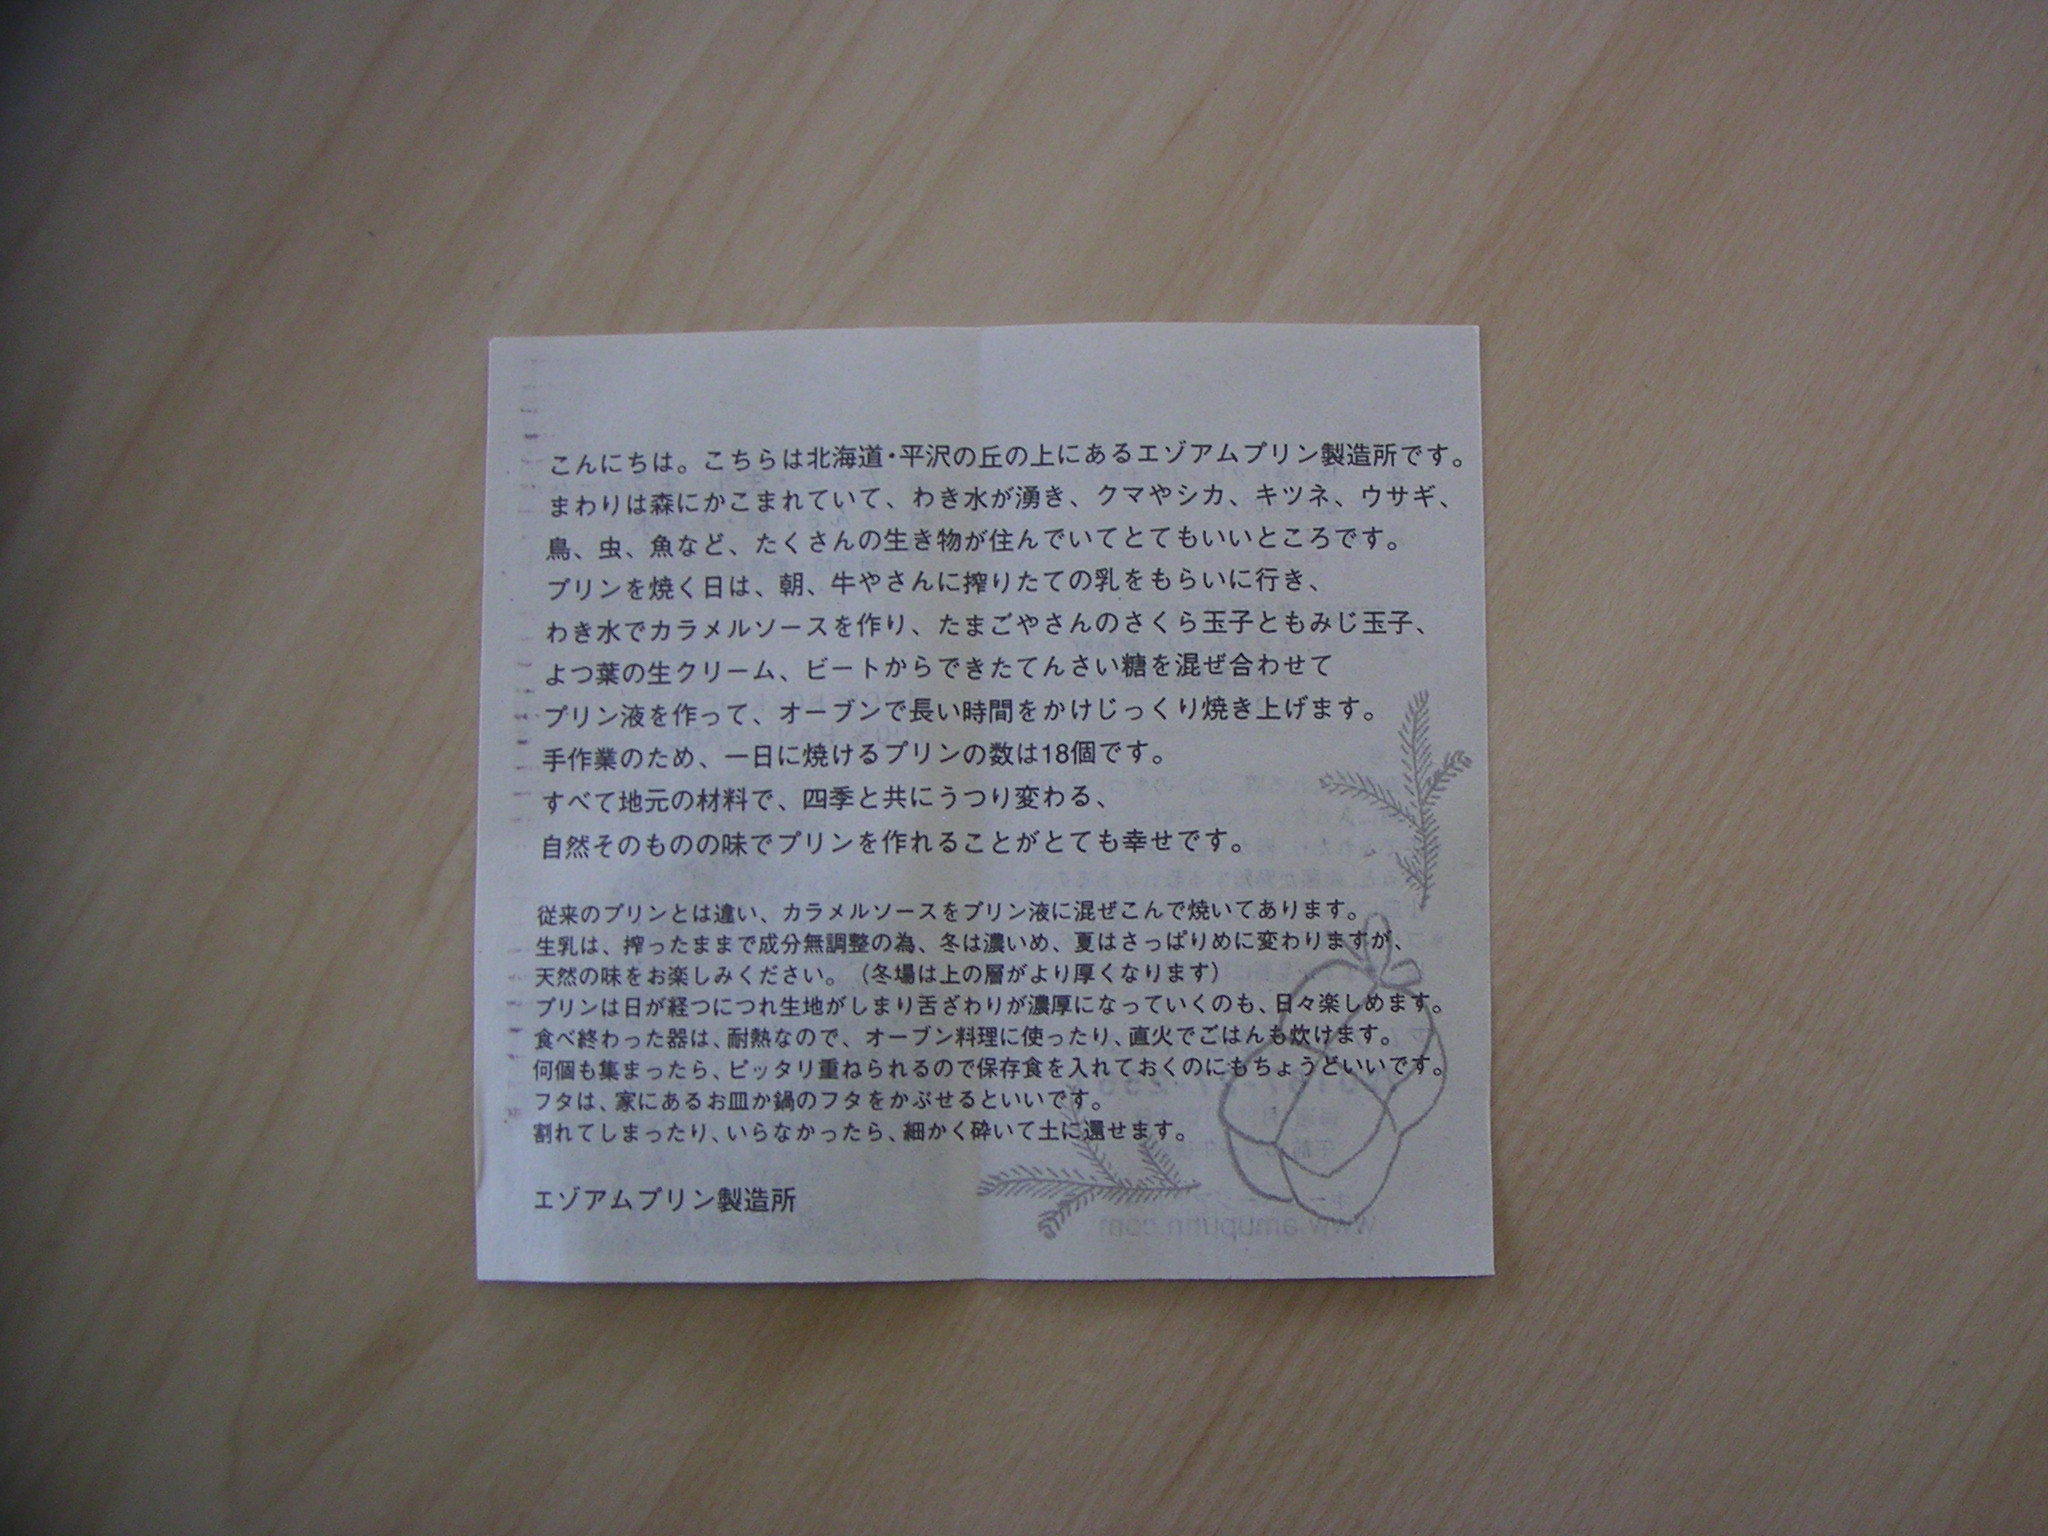 こんにちは。こちらは北海道・平沢の丘の上にあるエゾアムプリン製造所です。
まわりは森にかこまれていて、わき水が湧き、クマやシカ、キツネ、ウサギ、
鳥、虫、魚など、たくさんの生き物が住んでいてとてもいいところです。
プリンを焼く日は、朝、牛やさんに搾りたての乳をもらいに行き、
わき水でカラメルソースを作り、たまごやさんのさくら玉子ともみじ玉子、
よつ葉の生クリーム、ビートからできたてんさい糖を混ぜ合わせて
プリン液を作って、オーブンで長い時間をかけじっくり焼き上げます。
手作業のため、一日に焼けるプリンの数は18個です。
すべて地元の材料で、四季と共にうつり変わる、
自然そのものの味でプリンを作れることがとても幸せです。
従来のプリンとは違い、カラメルソースをプリン液に混ぜこんで焼いてあります。
生乳は、搾ったままで成分無調整の為、冬は濃いめ、夏はさっぱりめに変わりますが、
天然の味をお楽しみください。（冬場は上の層がより厚くなります）
プリンは日が経つにつれ生地がしまり舌ざわりが濃厚になっていくのも、日々楽しめます。
食べ終わった器は、耐熱なので、オーブン料理に使ったり、直火でごはんも炊けます。
何個も集まったら、ピッタリ重ねられるので保存食を入れておくのにもちょうどいいです。
フタは、家にあるお皿か鍋のフタをかぶせるといいです。
割れてしまったり、いらなかったら、細かく砕いて土に還せます。
エゾアムプリン製造所
www.amuputin.com